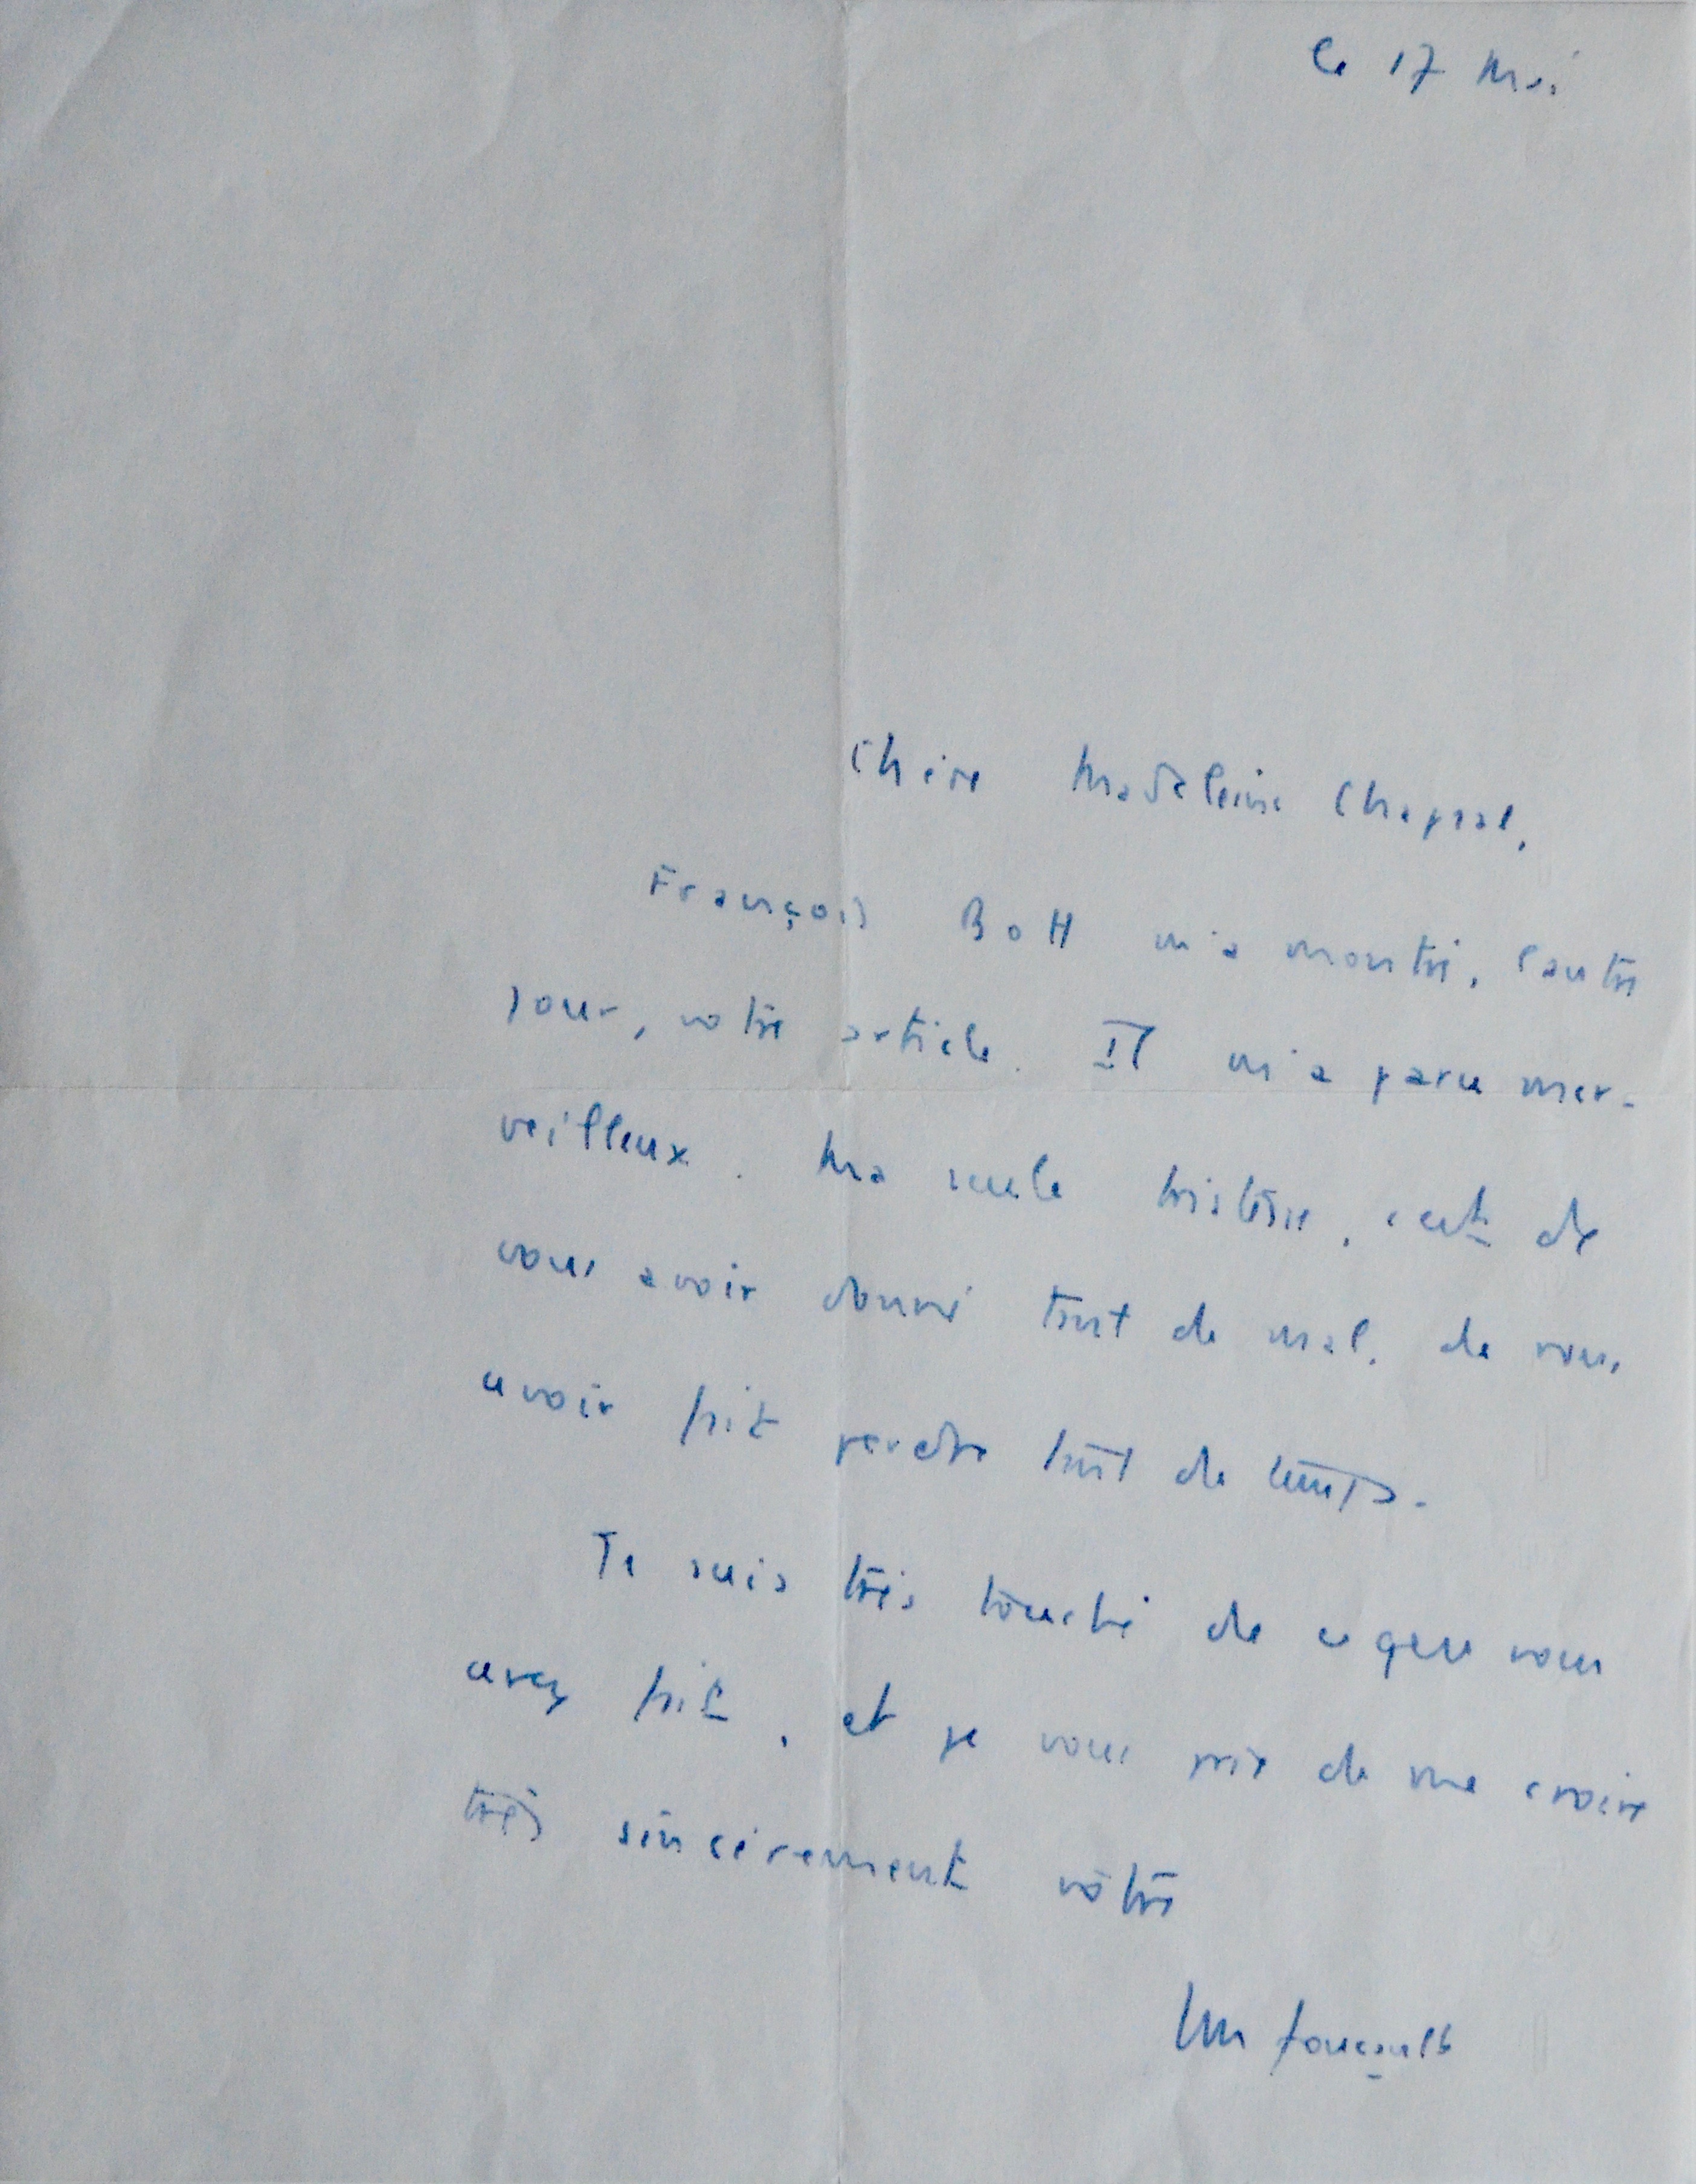 Le 17 Mai
Chère Madeleine Chapsal,
François Bott m'a montré, l'autre
jour, votre article. Il m'a paru mer-
veilleux. Ma seule tristesse, c'est de
vous avoir donné tant de mal, de vous
avoir fait perdre tant de temps.
Je suis très touché de ce que vous
avez fait, et je vous prie de me croire
très sincèrement vôtre
M Foucault